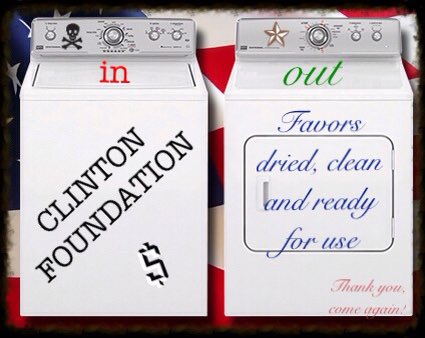 in
CLINTON
FOUNDATION
$
out
Favors
dried, clean
and ready
for use
Thank you,
come again!